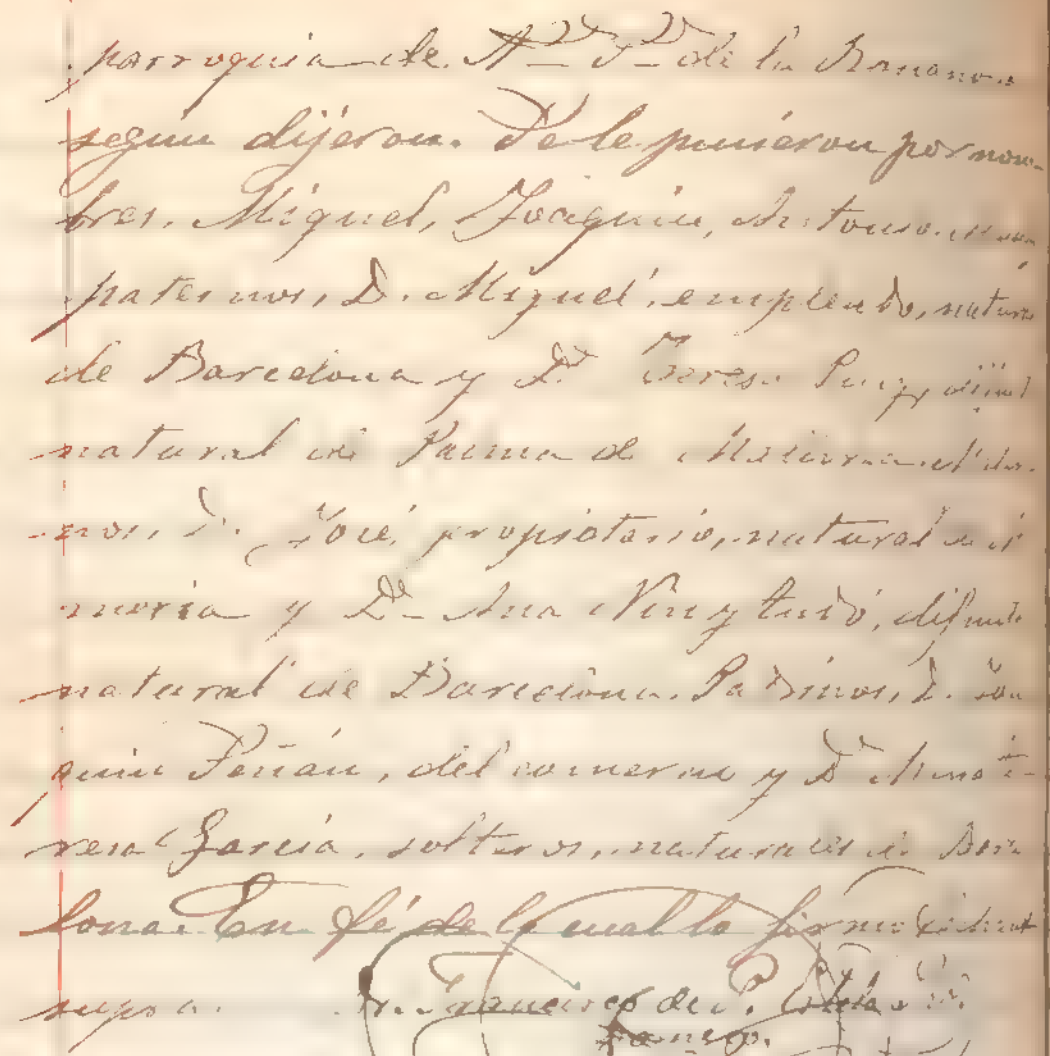 parroquia de Nª Sª de la Bonanova
según dijeron. Se le pusieron por nom-
bres, Miguel, Joaquin, Antonio.
paternos, D. Miguel, empleado, natural
de Barcelona y Dª Teresa Puig, difunta
natural de Palma de
nos, D. José, propietario, natural de
y Dª Ana difunta
natural de Barcelona. Padrinos, D. Joa
quin Terán, del comercio y Dª
García, solteros, naturales de Barce
lona. En fé de lo cual lo firmo
supra. Francisco de P.